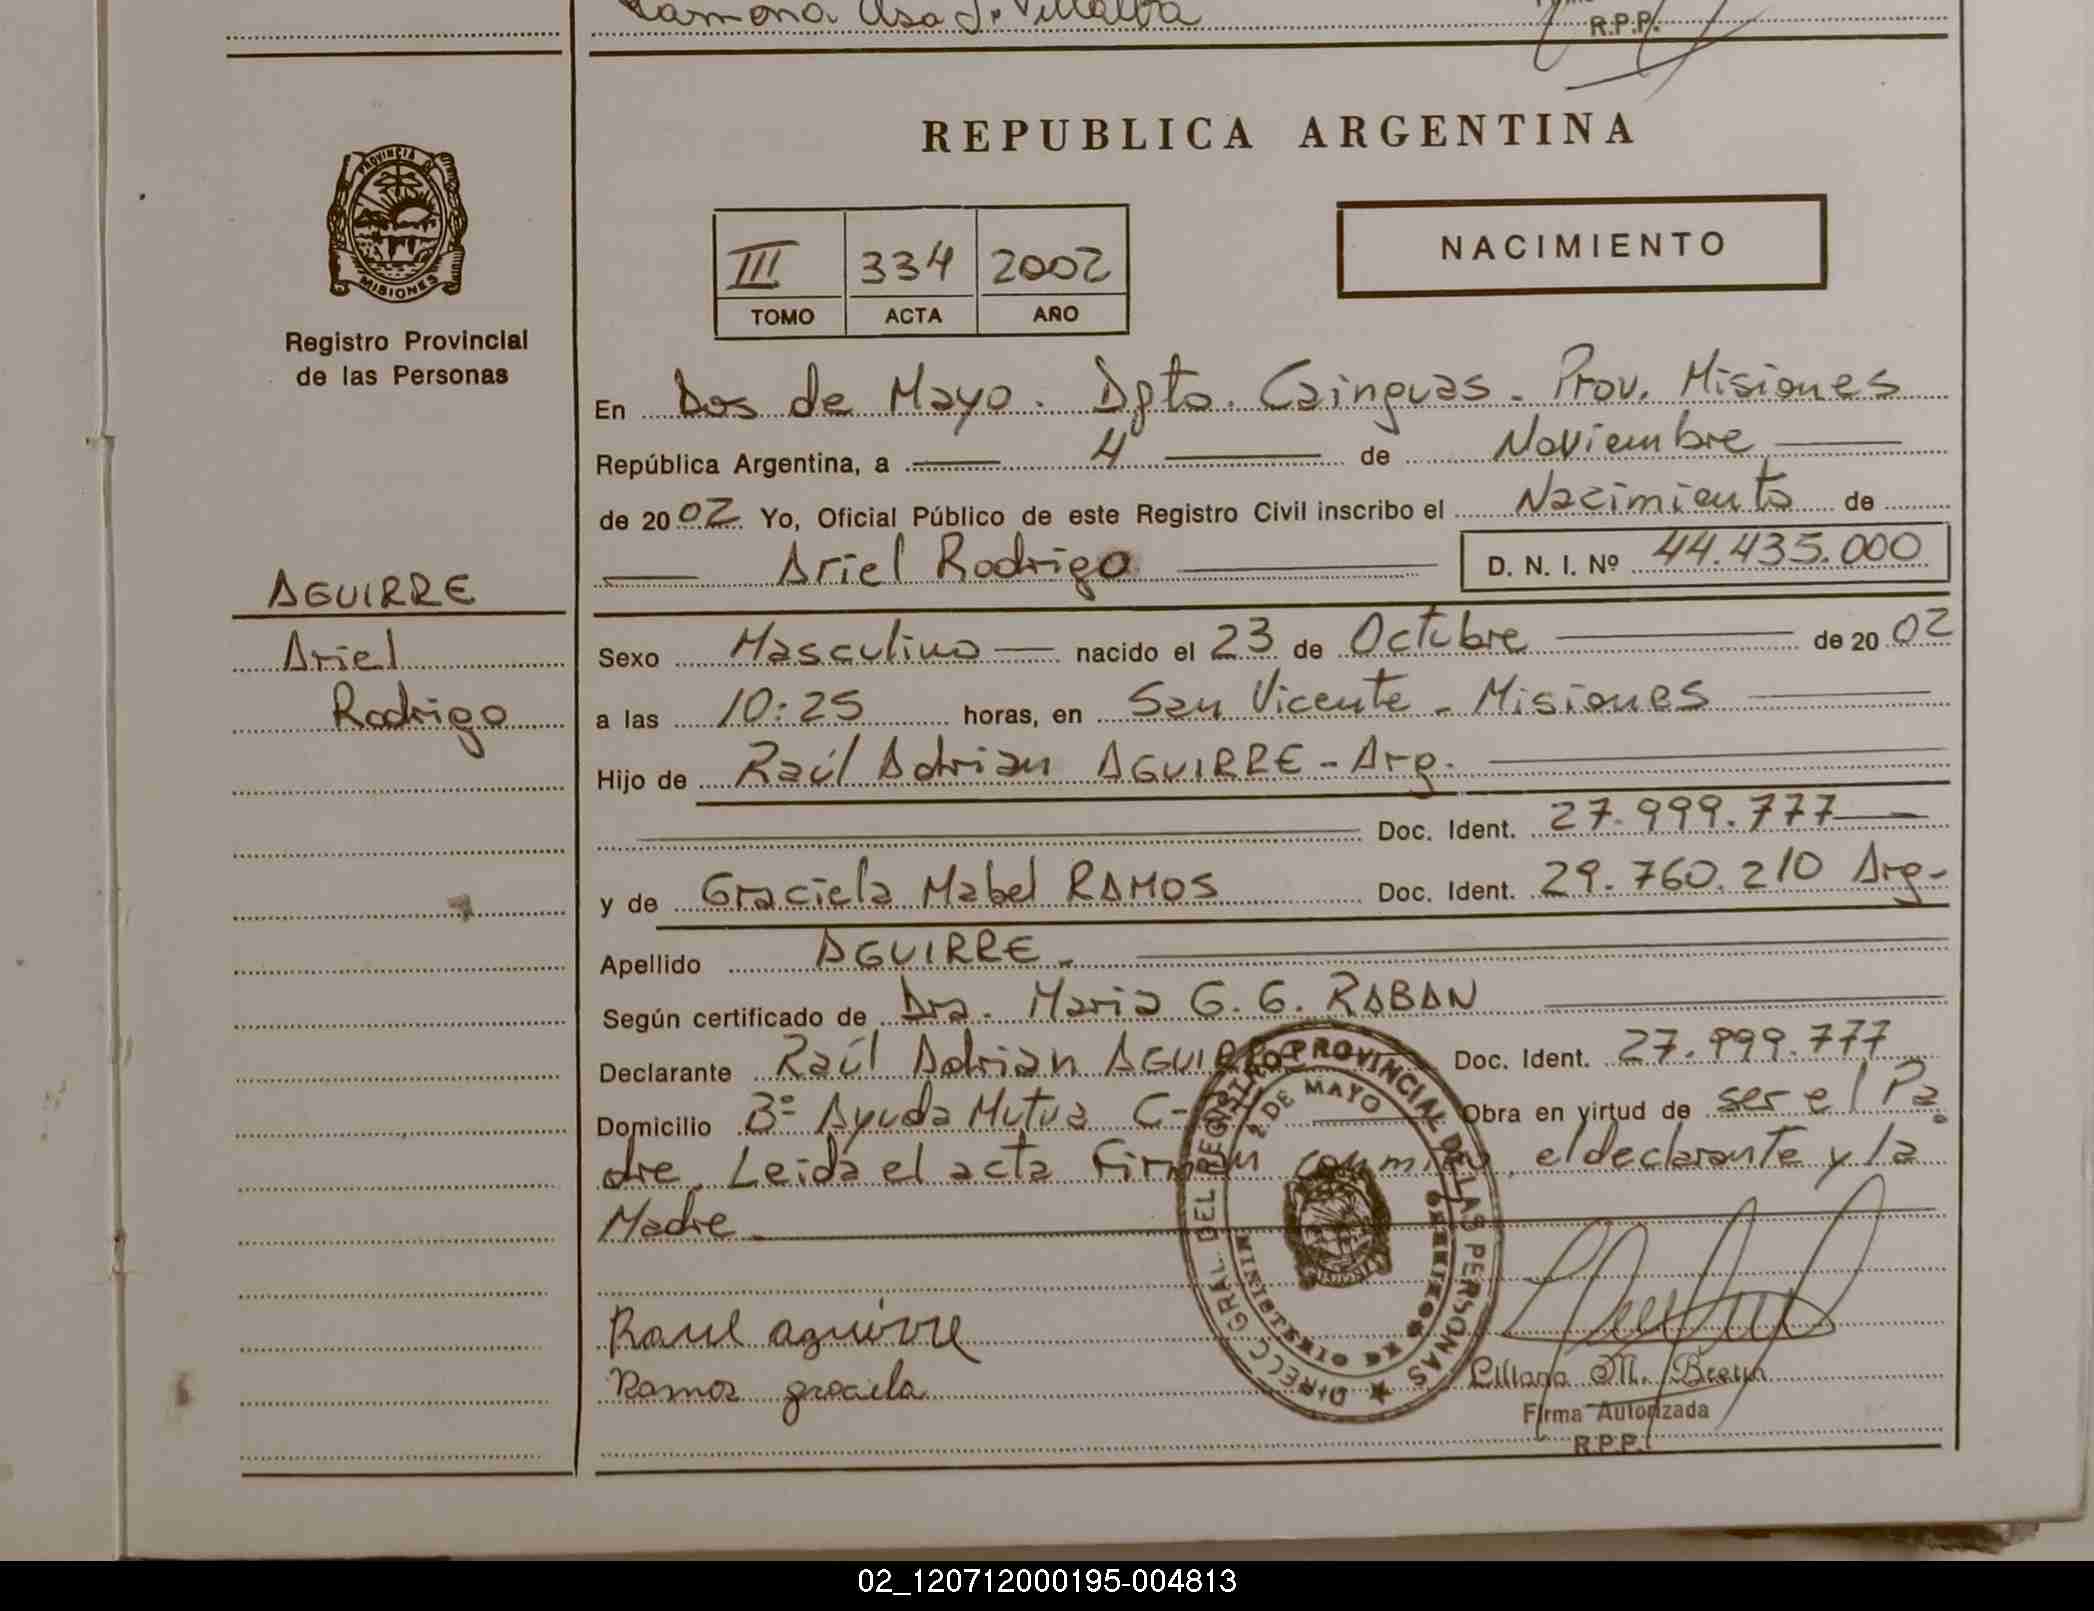 Ramona
R.P.P.
REPUBLICA ARGENTINA
PROVINCIA DE
MISIONES
III 334 2002
TOMO ACTA AÑO
NACIMIENTO
Registro Provincial
de las Personas
En Dos de Mayo. Dpto. Cainguas - Prov. Misiones
República Argentina, a 4 de Noviembre
de 2002 Yo, Oficial Público de este Registro Civil inscribo el Nacimiento de
Ariel Rodrigo D. N. I. Nº 44.435.000
AGUIRRE
Ariel
Rodrigo
Sexo Masculino nacido el 23 de Octubre de 2002
a las 10:25 horas, en San Vicente - Misiones
Hijo de Raúl Adrian AGUIRRE - Arg.
Doc. Ident. 27.999.777
y de Graciela Mabel RAMOS Doc. Ident. 29.760.210 Arg-
Apellido AGUIRRE -
Según certificado de Dra. Maria G. G. RABAN
Declarante Raúl Adrian AGUIRRE Doc. Ident. 27.999.777
Domicilio Bº Ayuda Mutua C- Obra en virtud de ser el Pa
dre. Leida el acta Firman conmigo, el declarante y la
Madre
DIRECC GRAL DEL REGISTRO PROVINCIAL DE LAS PERSONAS
2 DE MAYO
MINISTERIO DE GOBIERNO
Raul aguirre
Ramos graciela
Liliana M.
Firma Autorizada
R.P.P.
02_120712000195-004813